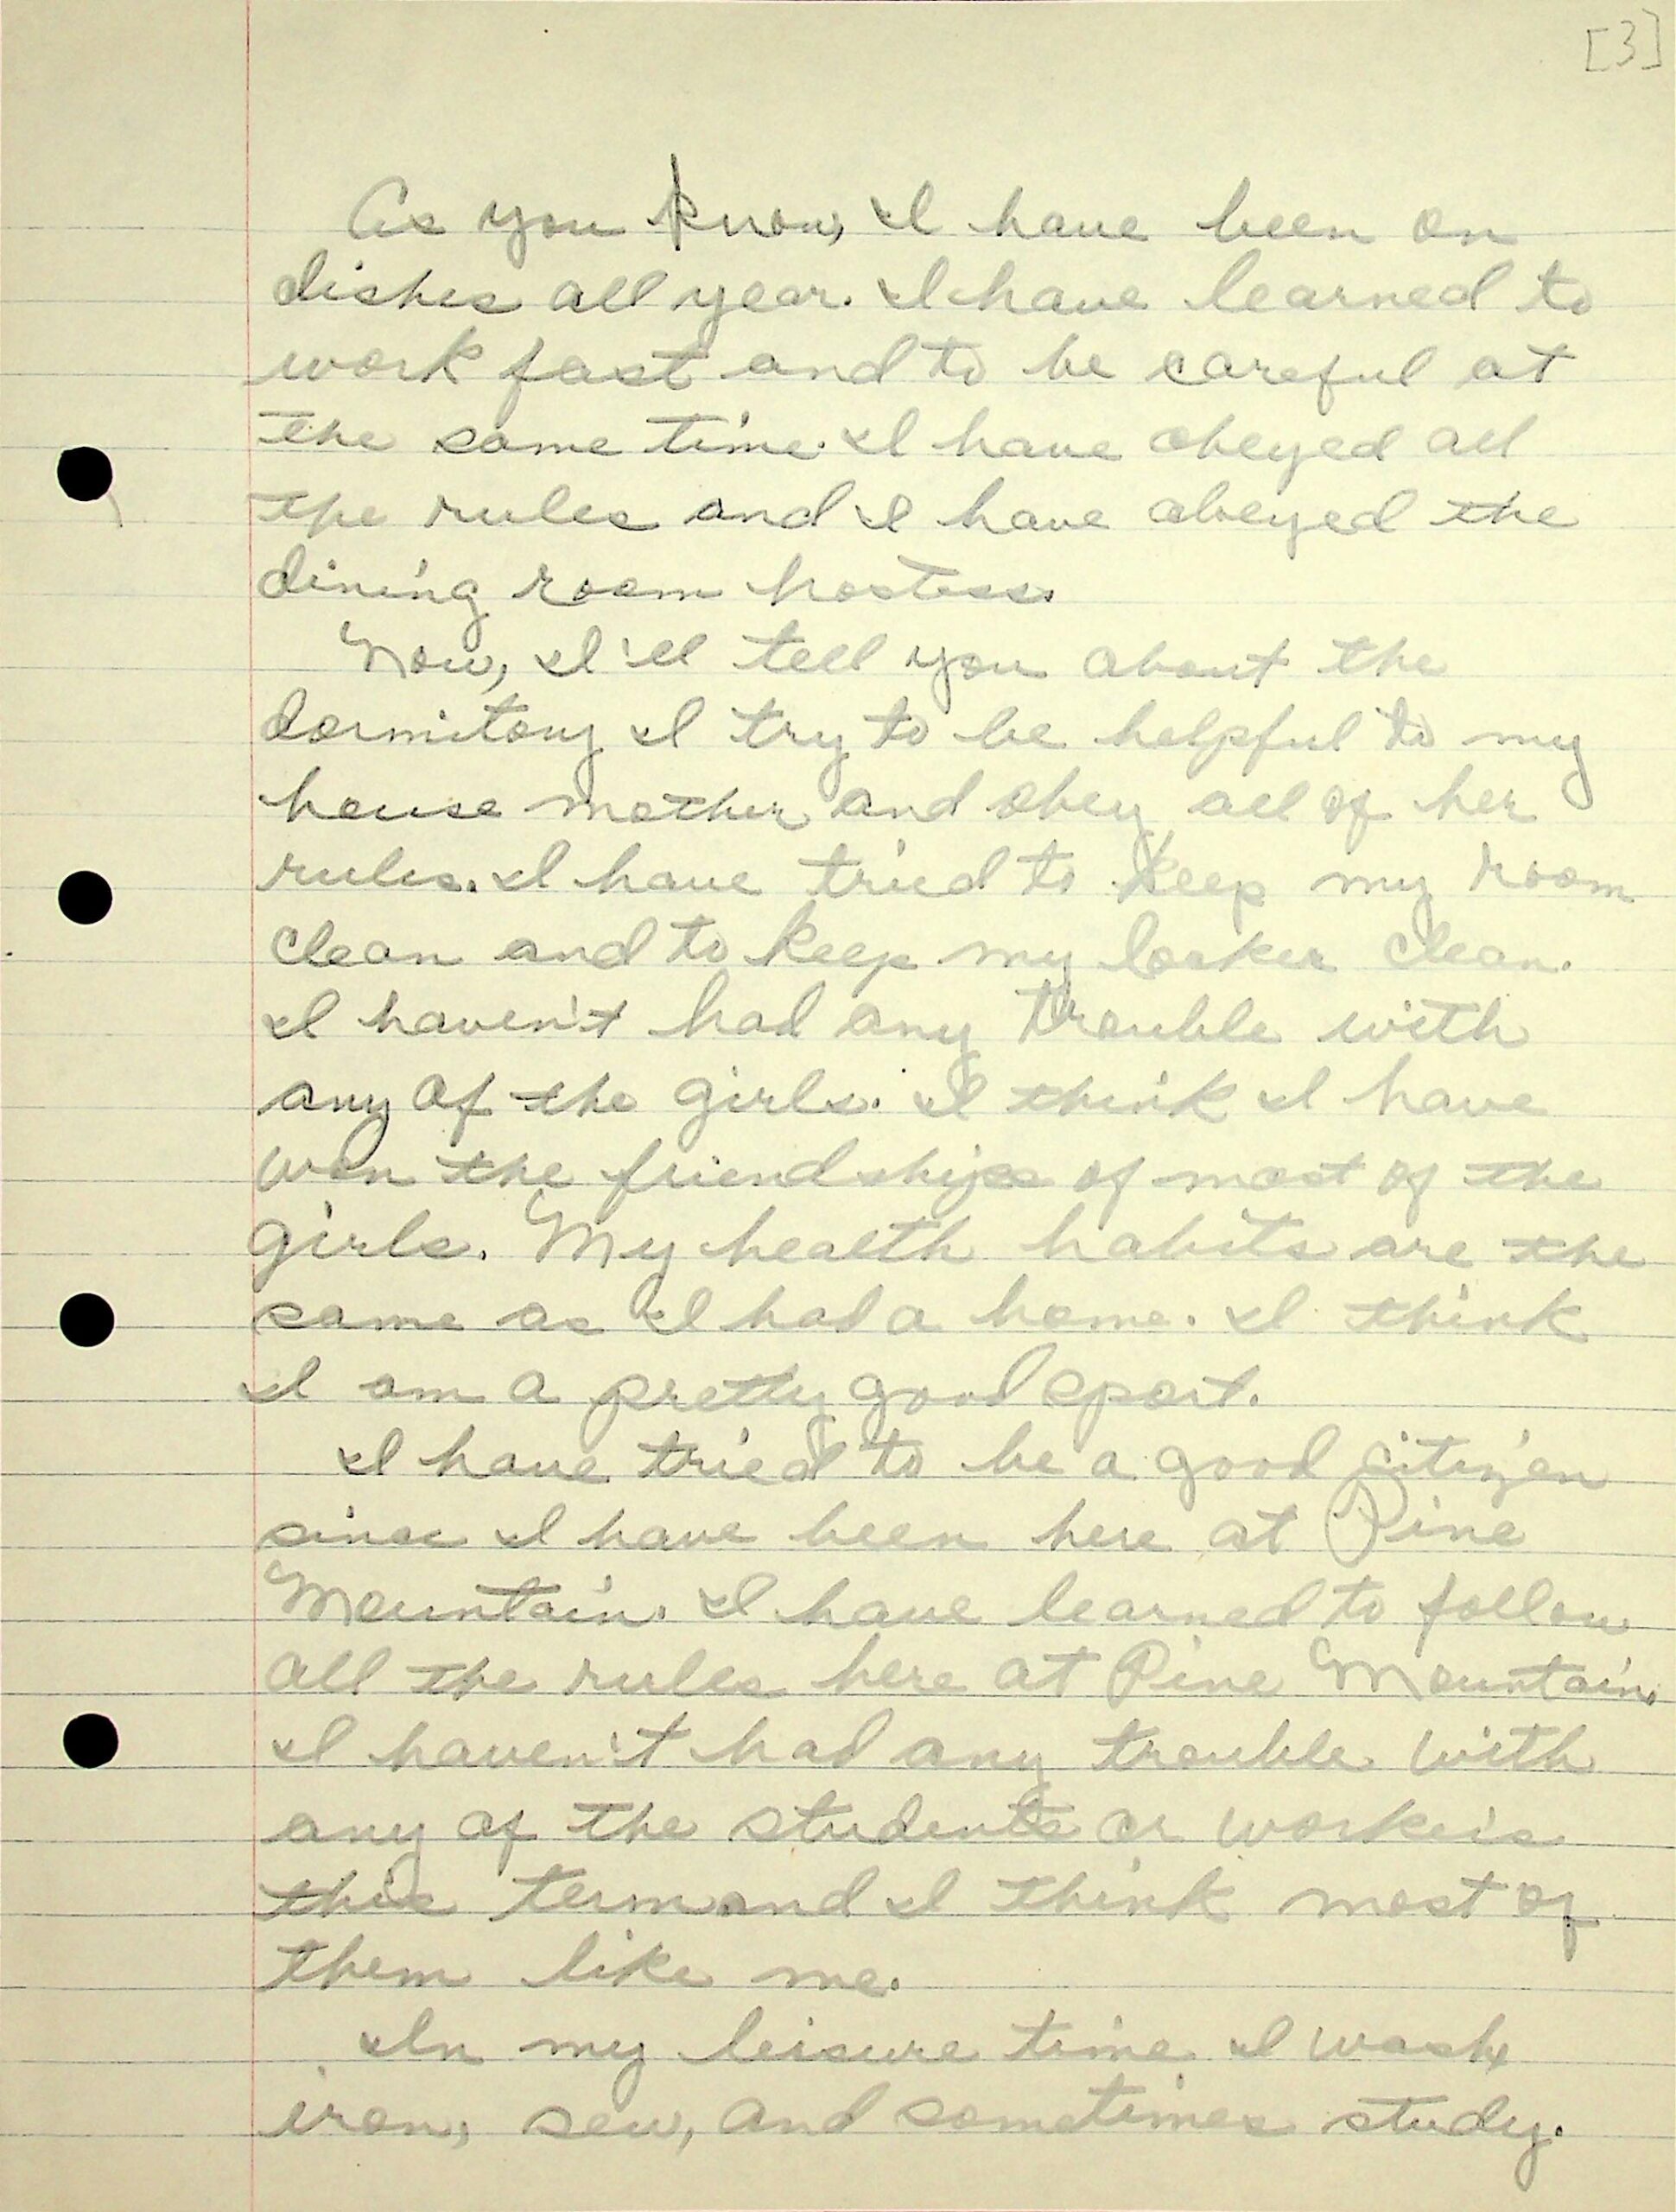 [3]
As you know, I have been on
dishes all year. I have learned to
work fast and to be careful at
the same time. I have obeyed all
the rules and I have obeyed the
dining room hostess.
Now, I'll tell you about the
dormitory I try to be helpful to my
house mother and obey all of her
rules. I have tried to keep my room
clean and to keep my locker clean.
I haven't had any trouble with
any of the girls. I think I have
won the friendships of most of the
girls. My health habits are the
same as I had a home. I think
I am a pretty good sport.
I have tried to be a good citizen
since I have been here at Pine
Mountain. I have learned to follow
all the rules here at Pine Mountain.
I haven't had any trouble with
any of the students or workers
this term and I think most of
them like me.
In my leisure time I wash,
iron, sew, and sometimes study.